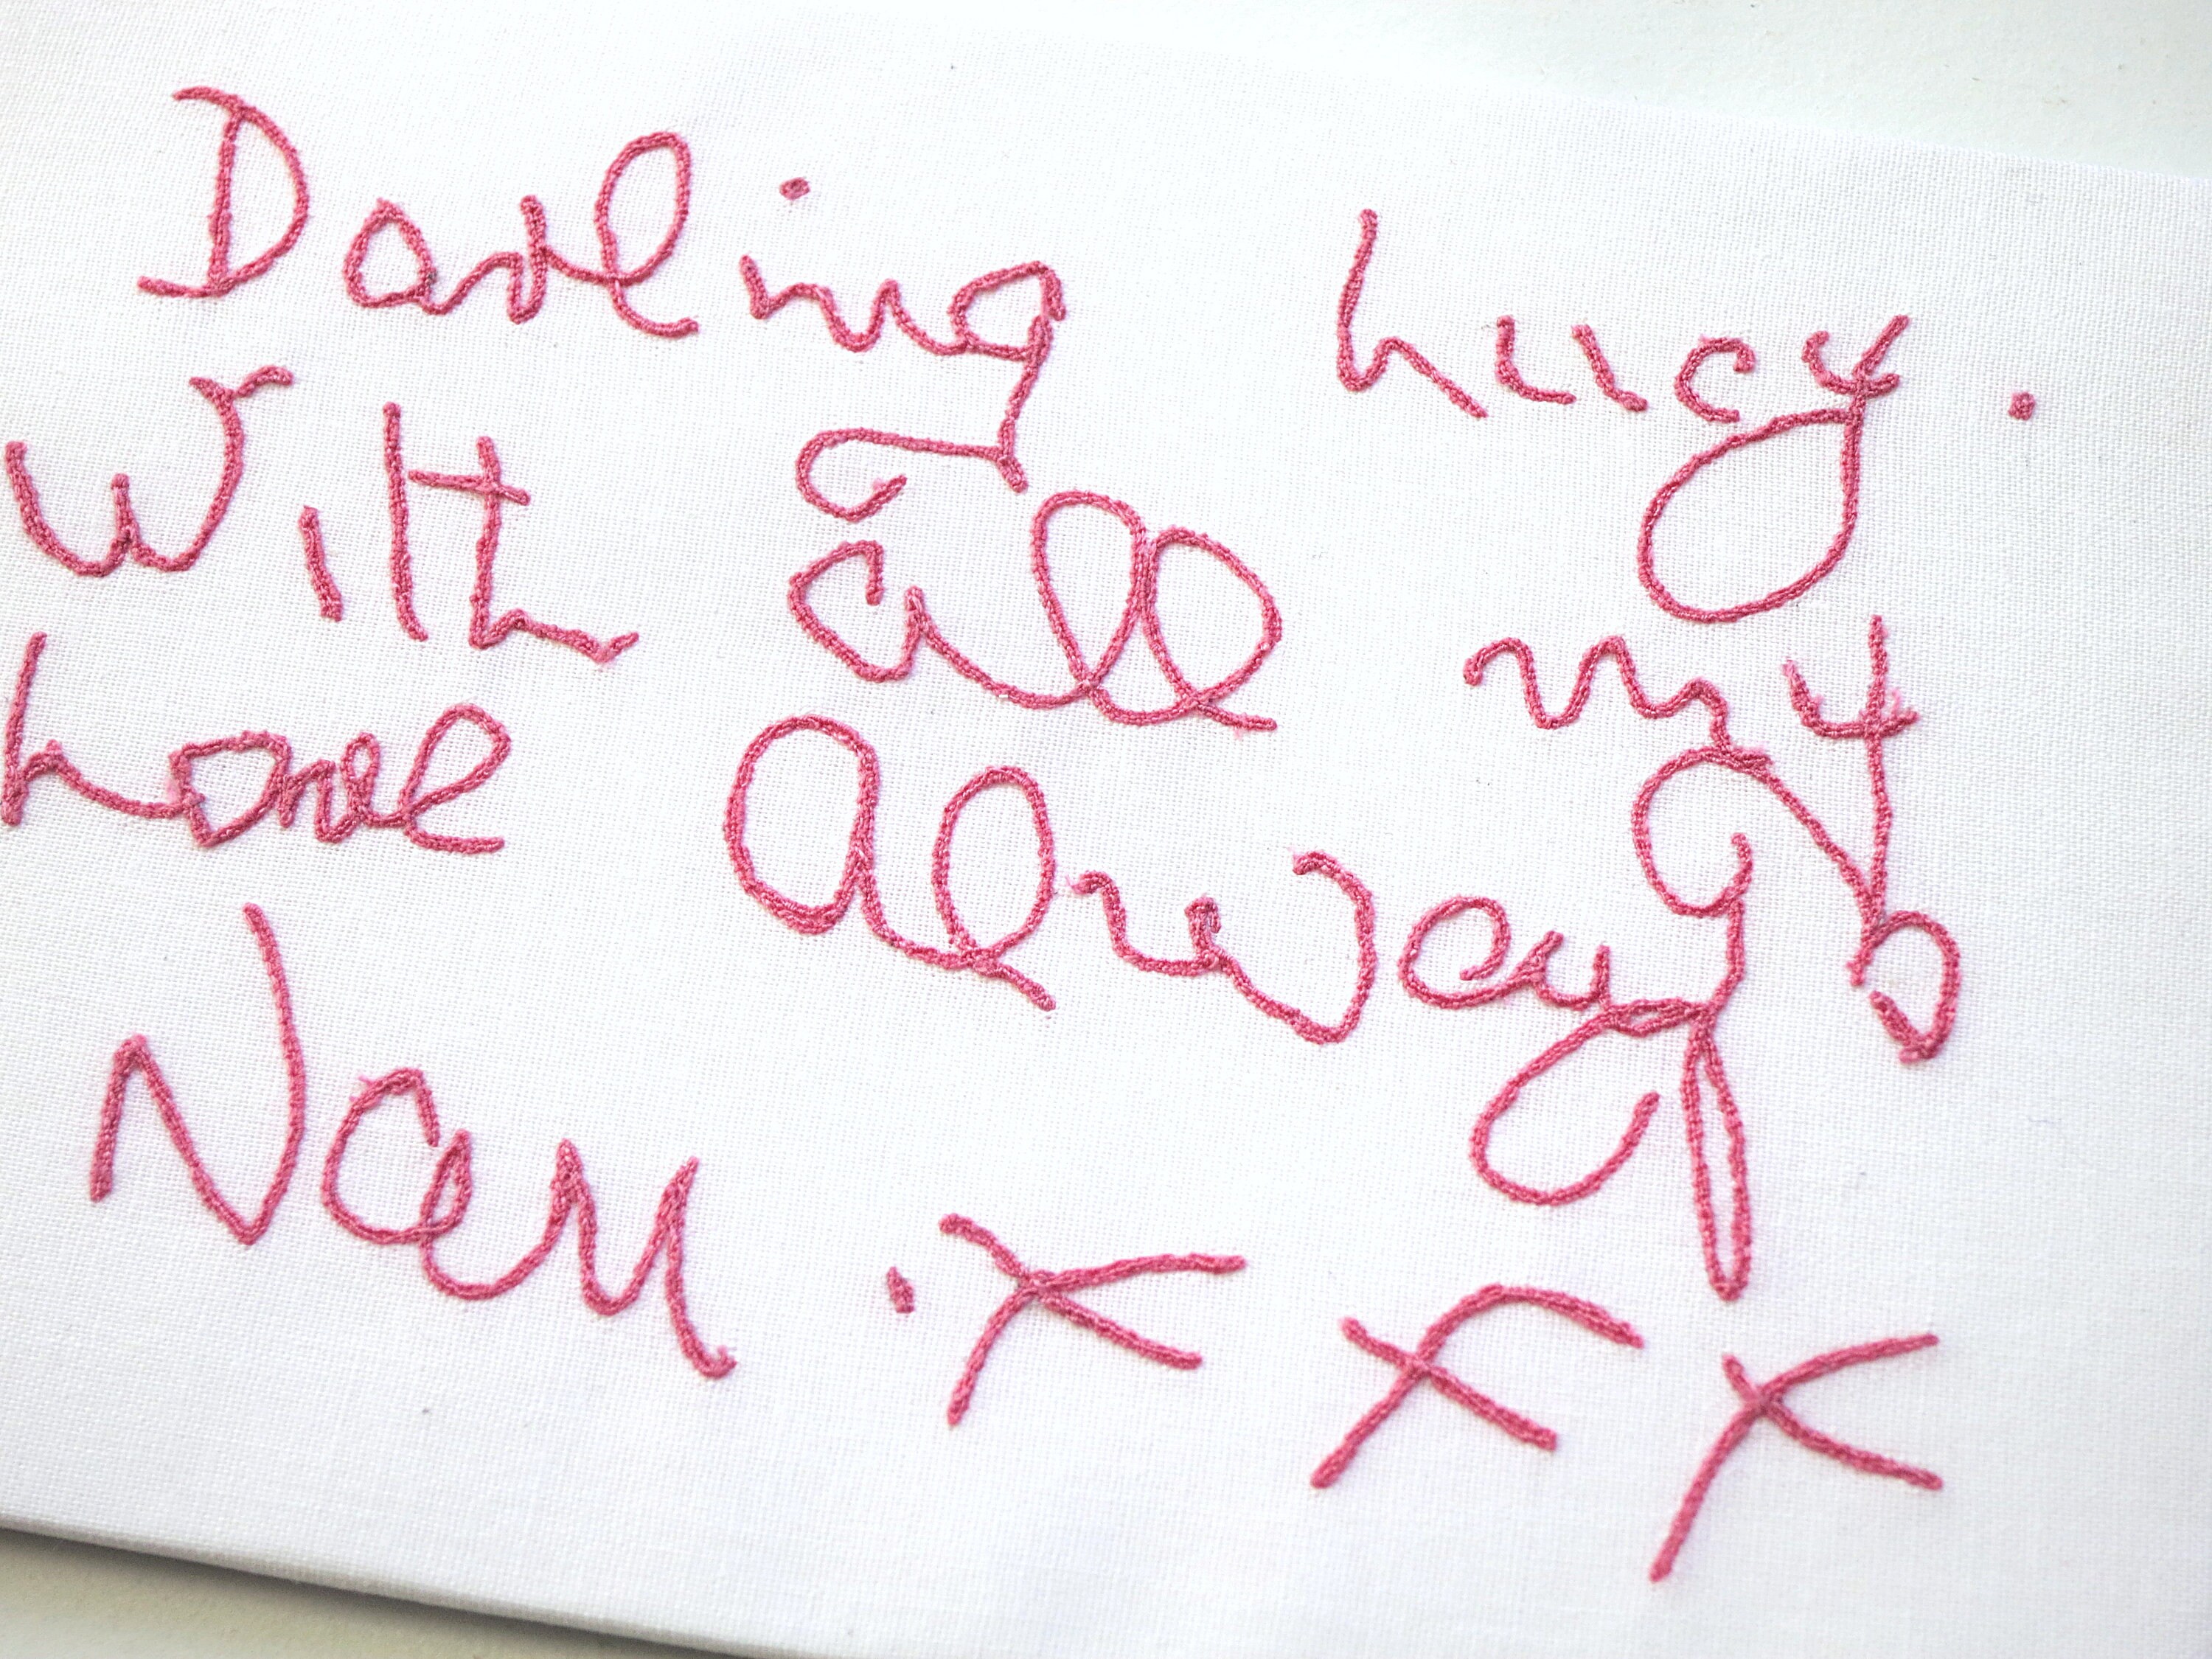 Darling Lucy.
With all my
Love Always
Nan. X X X